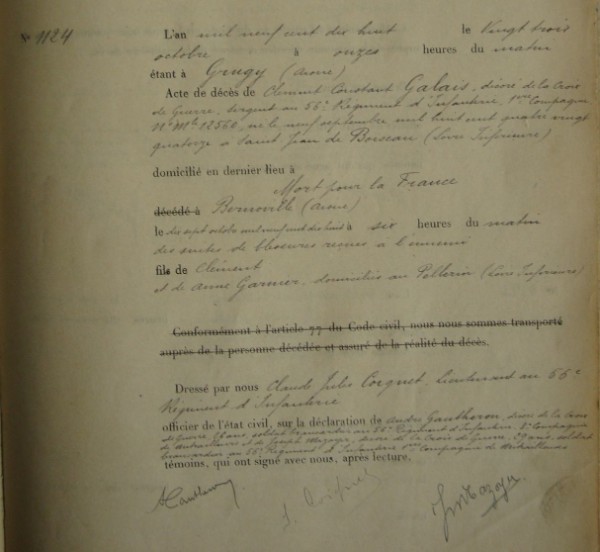 N° 1124
L'an mil neuf cent dix huit le Vingt trois
octobre à onze heures du matin
étant à Grugy (Aisne)
Acte de décès de Clément Constant Galais, décoré de la Croix
de Guerre, sergent au 55e Régiment d'Infanterie, 1ère Compagnie
N° Mle 12560, né le neuf septembre mil huit cent quatre vingt
quatorze à Saint Jean de Boiseau (Loire Inférieure)
domicilié en dernier lieu à
Mort pour la France
décédé à Bernoville (Aisne)
le dix sept octobre mil neuf cent dix huit à six heures du matin
des suites de blessures reçues à l'ennemi
fils de Clément
et de Anne Garnier, domiciliés au Pellerin (Loire Inférieure)
Conformément à l'article 77 du Code civil, nous nous sommes transporté
auprès de la personne décédée et assuré de la réalité du décès.
Dressé par nous Claude Jules Coignet, Lieutenant au 55e
Régiment d'Infanterie
officier de l'état civil, sur la déclaration de André Gautheron, décoré de la Croix
de Guerre, ans, soldat brancardier au 55e Régiment d'Infanterie, Compagnie
de Mitrailleuses et de Joseph Mazoyer, décoré de la Croix de Guerre, 29 ans, soldat
brancardier au 55e Régiment d'Infanterie Compagnie de Mitrailleuses
témoins, qui ont signé avec nous, après lecture.
Gautheron J. Coignet Mazoyer